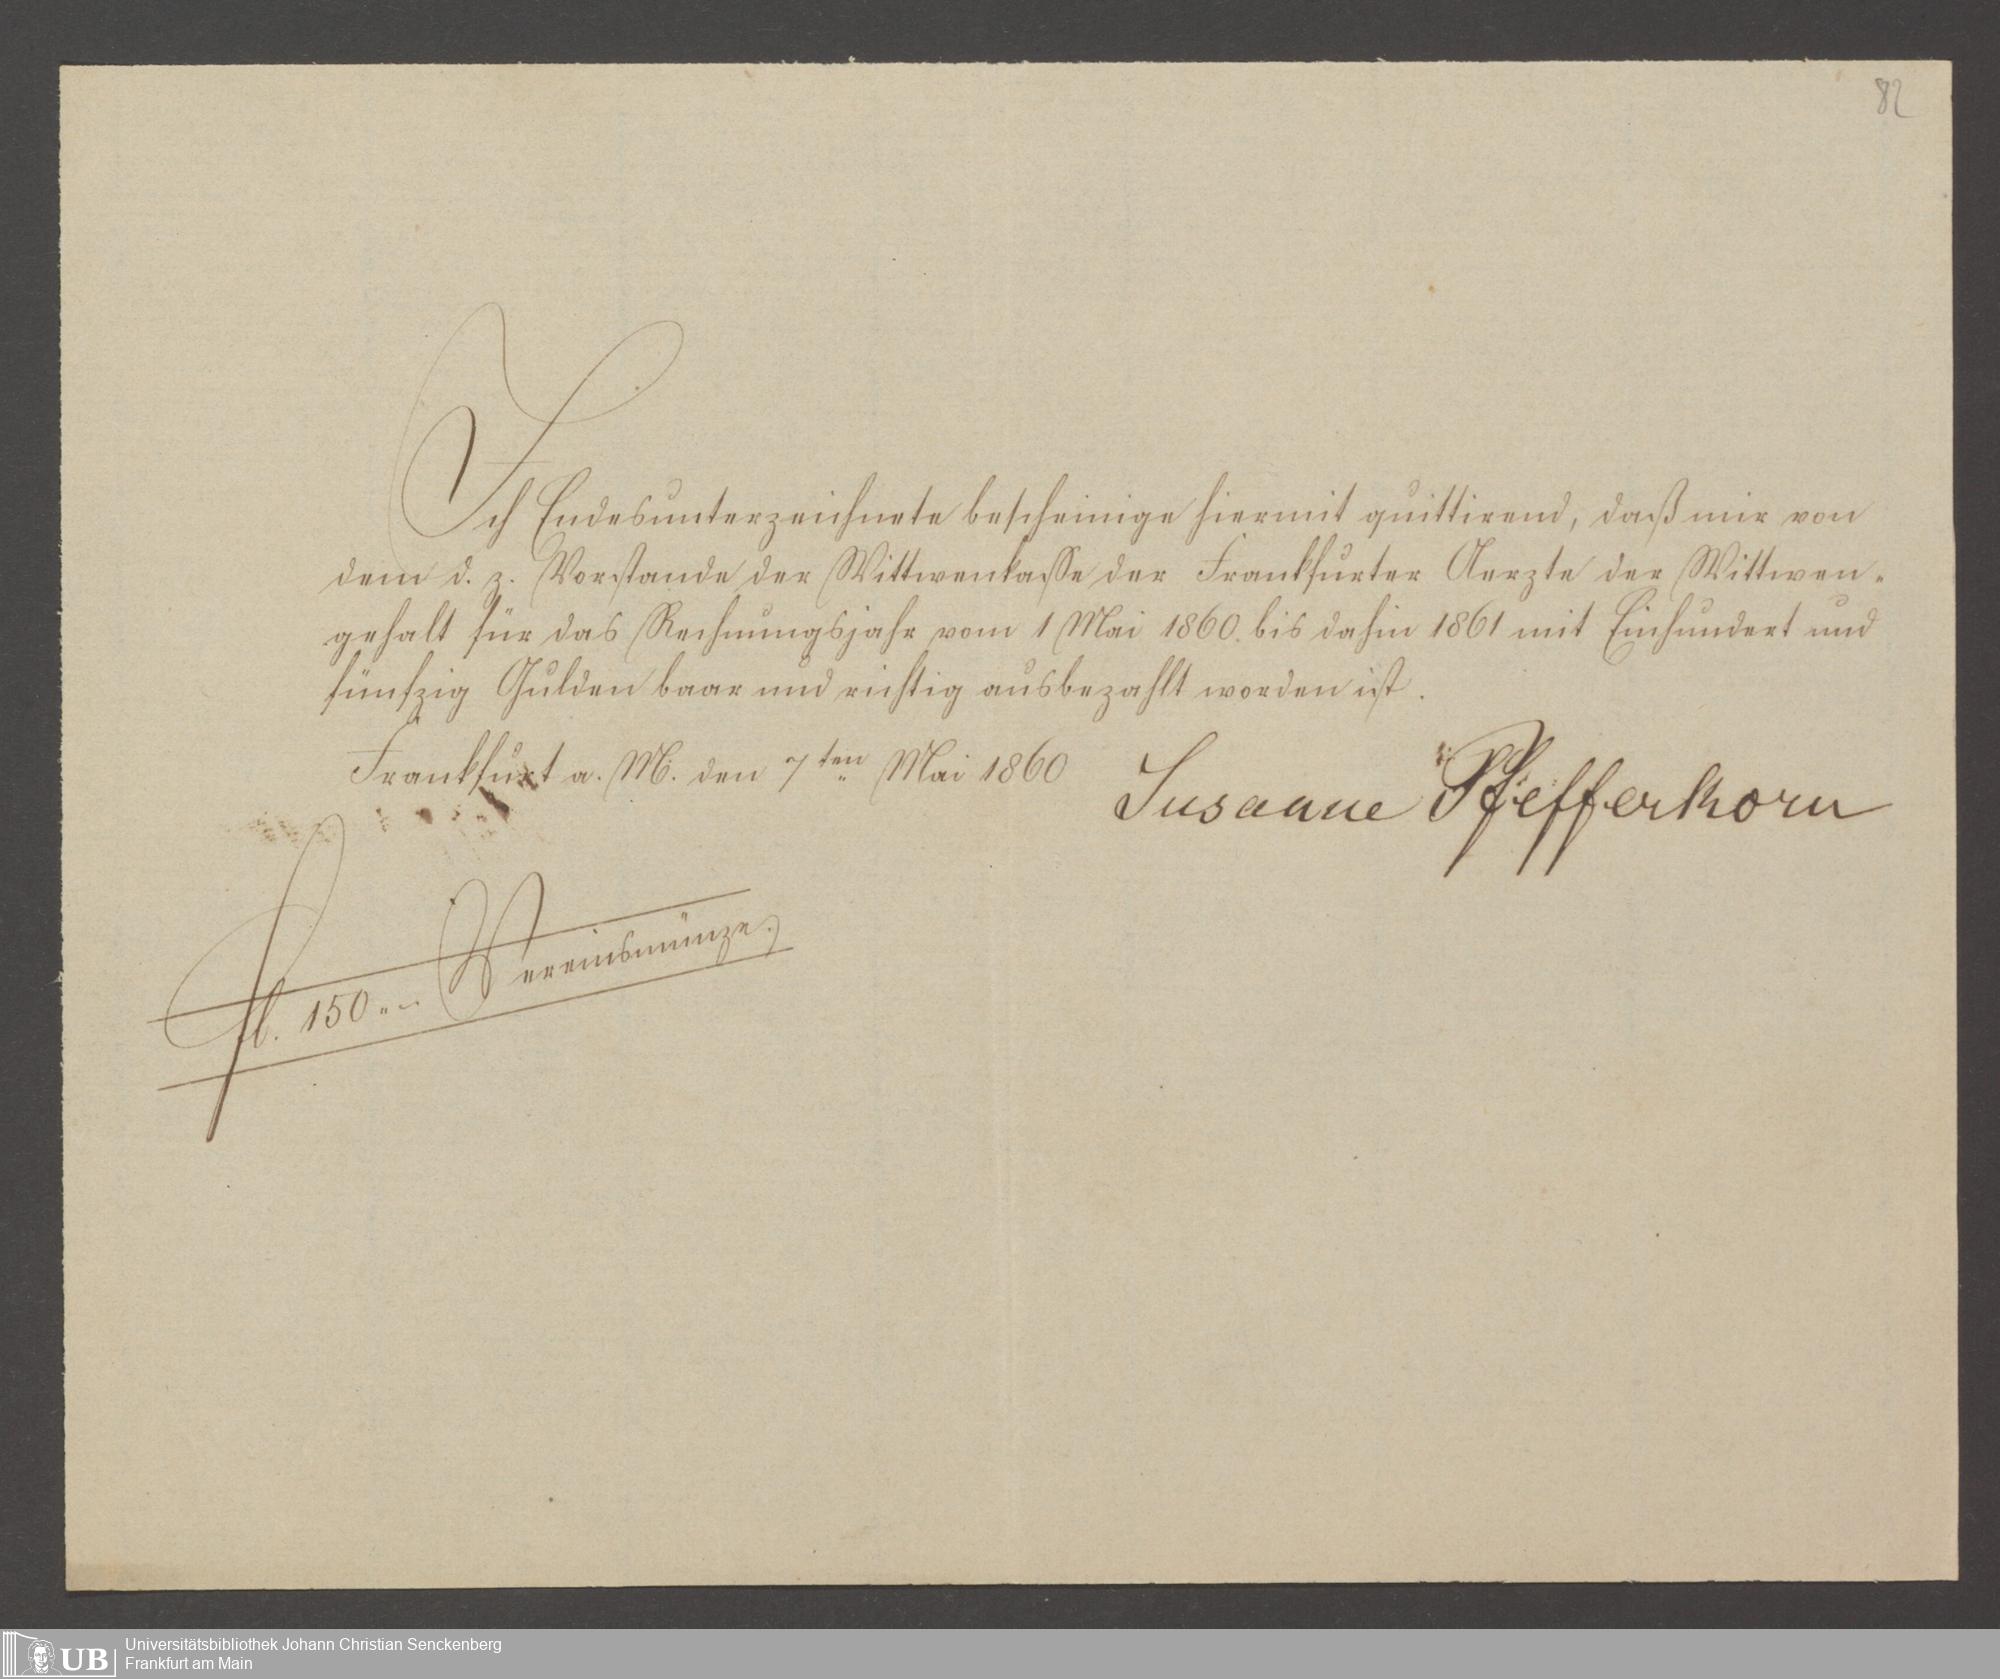 82
Ich Endesunterzeichnete bescheinige hiermit quittirend, daß mir von
dem d. z. Vorstande der Wittwenkasse der Frankfurter Aerzte der Wittwen-
gehalt für das Rechnungsjahr vom 1 Mai 1860. bis dahin 1861 mit Einhundert und
fünfzig Gulden baar und richtig ausbezahlt worden ist.
Frankfurt a. M. den 7ten Mai 1860
Susanne Pfefferkorn
fl. 150 „ – Vereinsmünze.
UB
Universitätsbibliothek Johann Christian Senckenberg
Frankfurt am Main